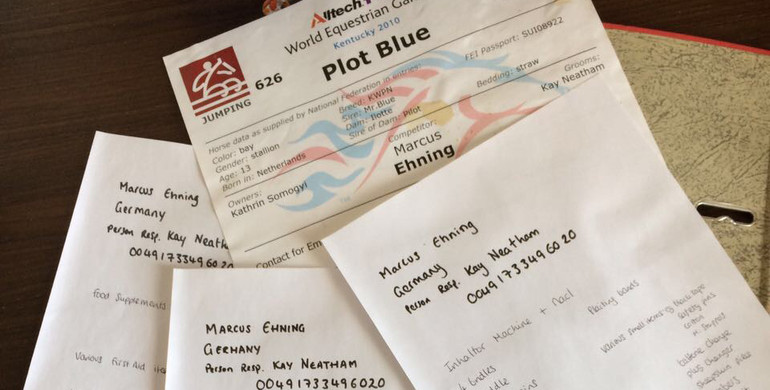 Alltech
World Equestrian Ga
Kentucky 2010
JUMPING
626
Plot Blue
FEI Passport: SU108922
Horse data as supplied by National Federation in entries:
Color: bay
Breed: KWPN
Bedding: straw
Gender: stallion
Sire: Mr.Blue
Age: 13
Dam: Ilotte
Born in: Netherlands
Sire of Dam: Pilot
Grooms:
Kay Neatham
Owners:
Kathrin Somogyi
Competitor:
Marcus
Ehning
Contact for Em
Marcus Ehning
Germany
Person Resp. Kay Neath
0049173349602
Food Supplements
Various First Aid
MARCUS EHNING
GERMANY
Person Resp. KAY NEATHAM
00491733496020
Marcus Ehning
Germany
Person Resp. Kay Neatham
00491733496020
Inhaltor Machine + Nacl
bridles
Plaiting bands
various small items
safety pins